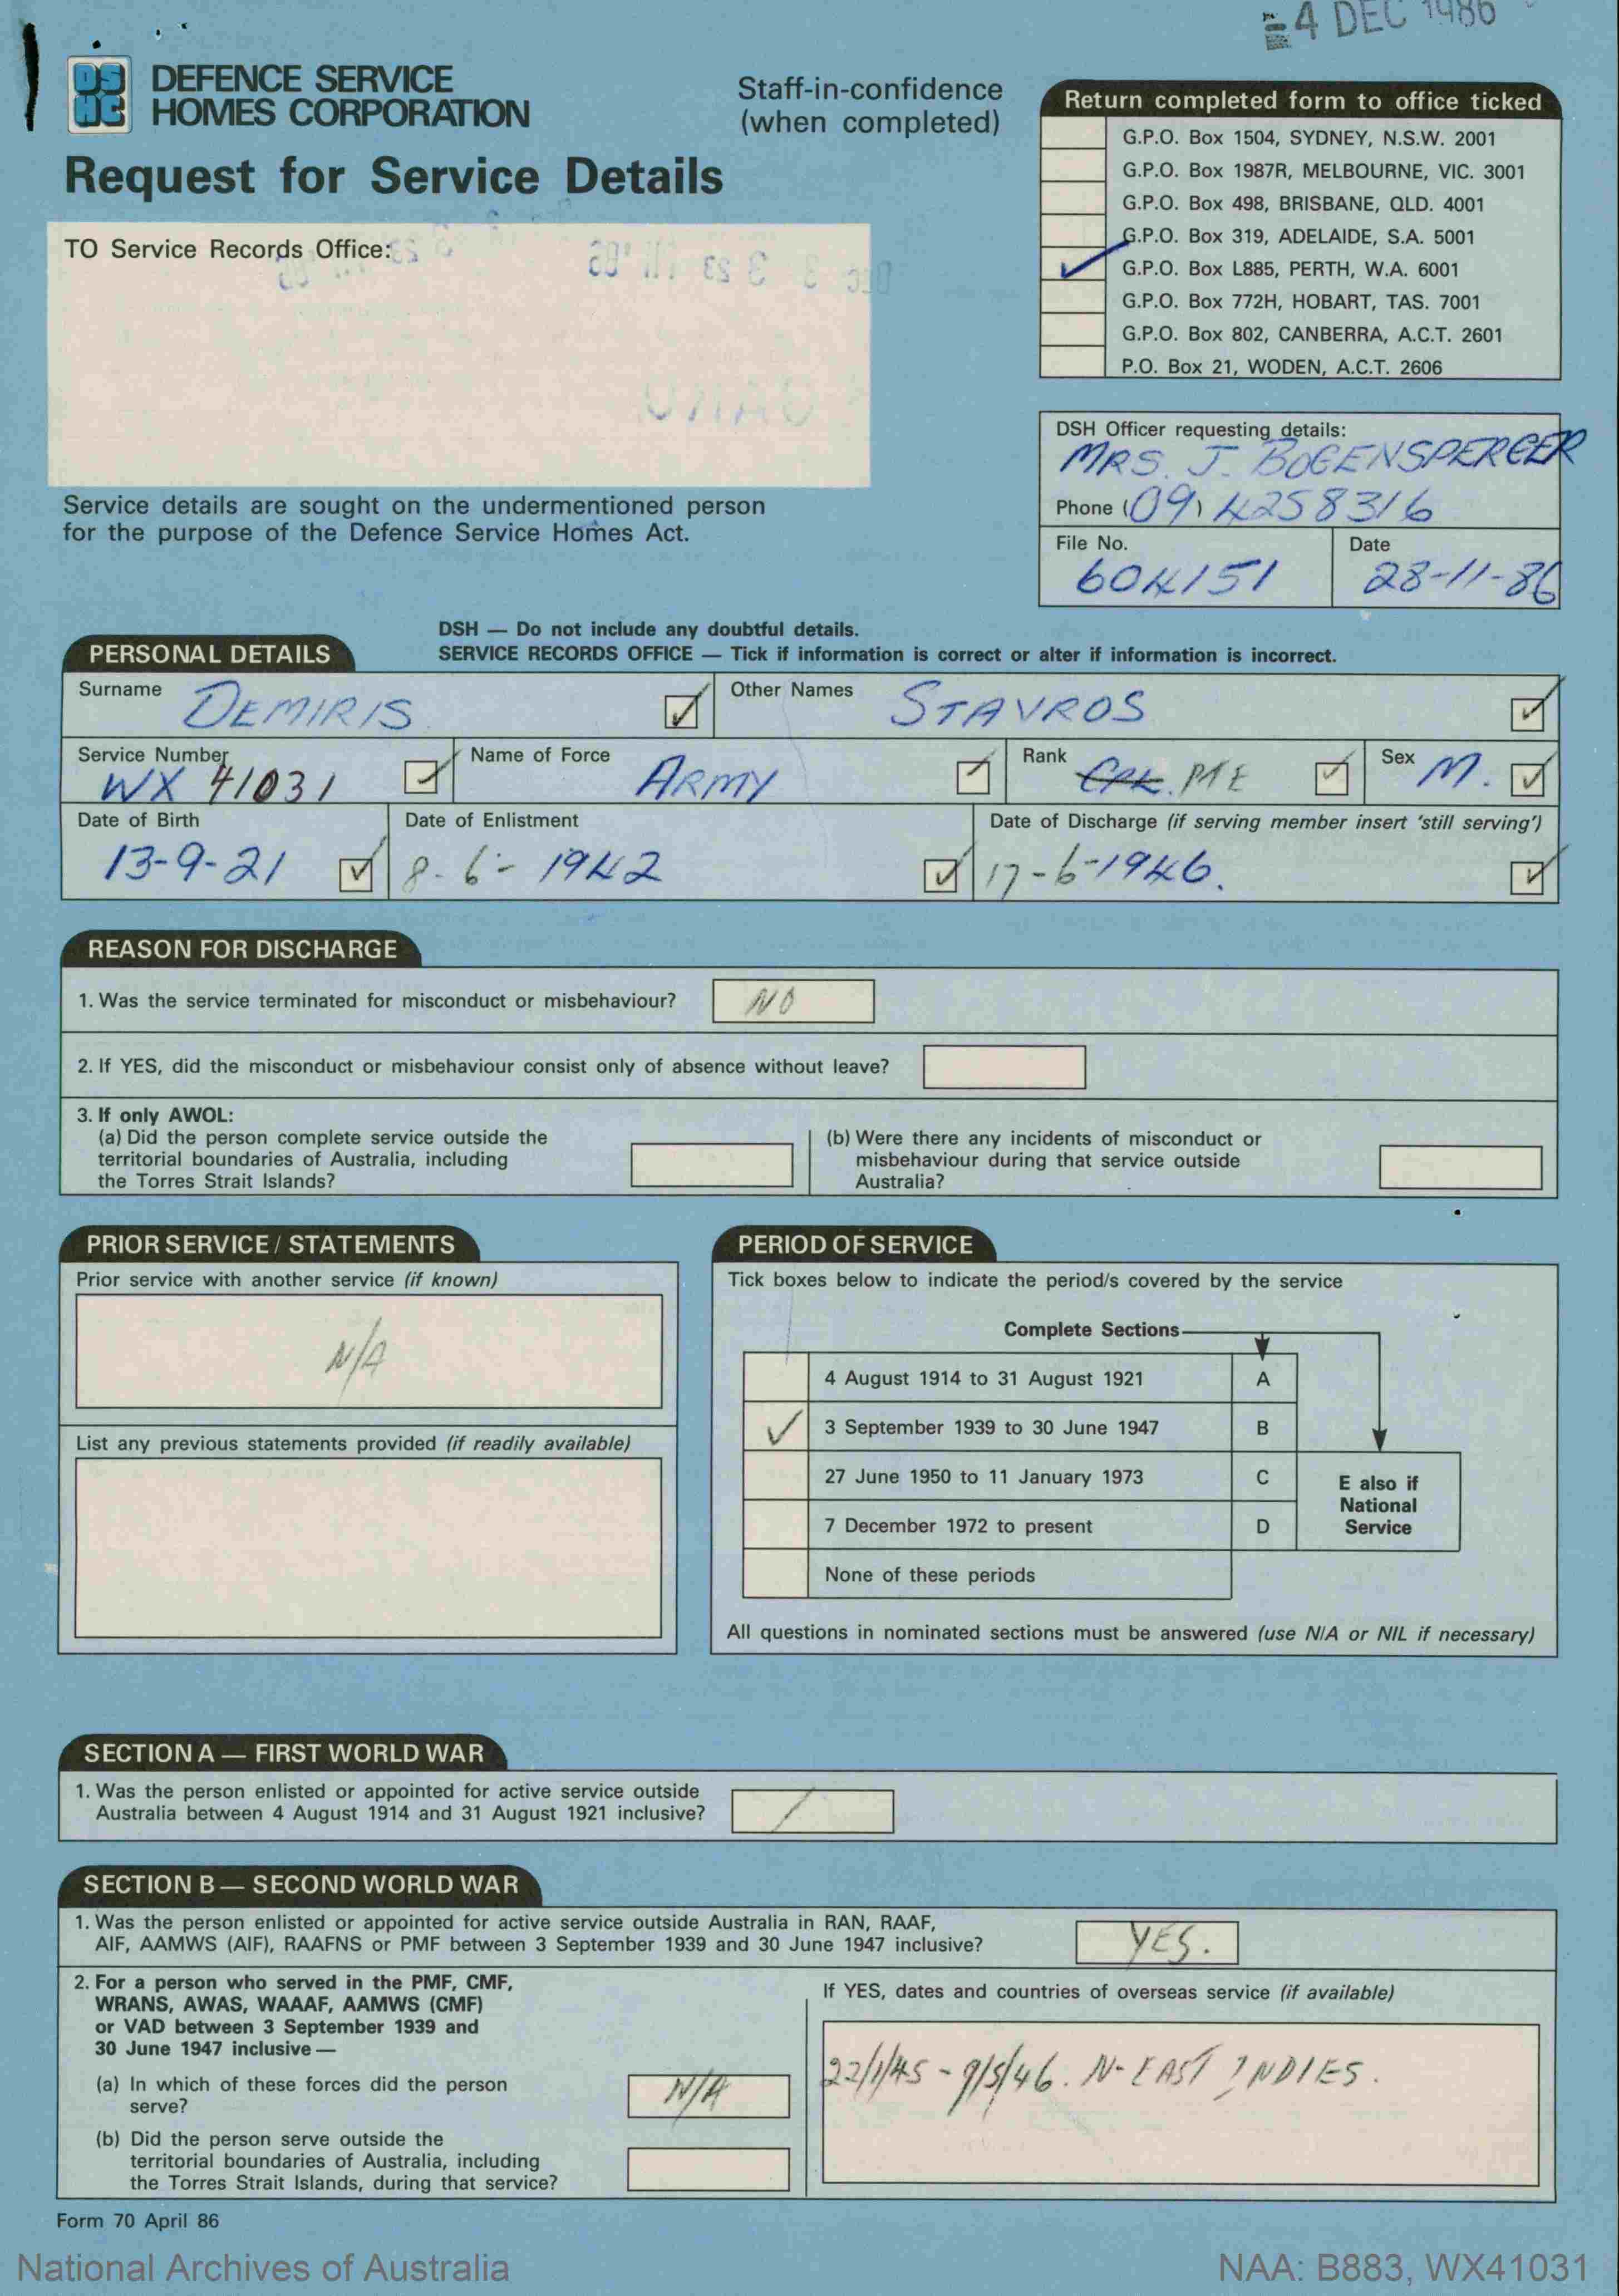 4 DEC 1986
DEFENCE SERVICE
HOMES CORPORATION
Staff-in-confidence
(when completed)
Request for Service Details
Return completed form to office ticked
G.P.O. Box 1504, SYDNEY, N.S.W. 2001
G.P.O. Box 1987R, MELBOURNE, VIC. 3001
G.P.O. Box 498, BRISBANE, QLD. 4001
G.P.O. Box 319, ADELAIDE, S.A. 5001
✓ G.P.O. Box L885, PERTH, W.A. 6001
G.P.O. Box 772H, HOBART, TAS. 7001
G.P.O. Box 802, CANBERRA, A.C.T. 2601
P.O. Box 21, WODEN, A.C.T. 2606
TO Service Records Office:
Service details are sought on the undermentioned person
for the purpose of the Defence Service Homes Act.
DSH Officer requesting details:
MRS. J. BOGENSPERGER
Phone (09) 4258316
File No. Date
604151 28-11-86
DSH — Do not include any doubtful details.
PERSONAL DETAILS SERVICE RECORDS OFFICE — Tick if information is correct or alter if information is incorrect.
Surname DEMIRIS ✓ Other Names STAVROS ✓
Service Number Name of Force Rank Sex
WX 41031 ✓ ARMY ✓ PTE ✓ M. ✓
Date of Birth Date of Enlistment Date of Discharge (if serving member insert 'still serving')
13-9-21 ✓ 8-6-1942 ✓ 17-6-1946. ✓
REASON FOR DISCHARGE
1. Was the service terminated for misconduct or misbehaviour? NO
2. If YES, did the misconduct or misbehaviour consist only of absence without leave?
3. If only AWOL:
(a) Did the person complete service outside the
territorial boundaries of Australia, including
the Torres Strait Islands?
(b) Were there any incidents of misconduct or
misbehaviour during that service outside
Australia?
PRIOR SERVICE / STATEMENTS
Prior service with another service (if known)
N/A
List any previous statements provided (if readily available)
PERIOD OF SERVICE
Tick boxes below to indicate the period/s covered by the service
Complete Sections
4 August 1914 to 31 August 1921 A
✓ 3 September 1939 to 30 June 1947 B
27 June 1950 to 11 January 1973 C
7 December 1972 to present D
None of these periods
E also if
National
Service
All questions in nominated sections must be answered (use N/A or NIL if necessary)
SECTION A — FIRST WORLD WAR
1. Was the person enlisted or appointed for active service outside
Australia between 4 August 1914 and 31 August 1921 inclusive? /
SECTION B — SECOND WORLD WAR
1. Was the person enlisted or appointed for active service outside Australia in RAN, RAAF,
AIF, AAMWS (AIF), RAAFNS or PMF between 3 September 1939 and 30 June 1947 inclusive? YES.
2. For a person who served in the PMF, CMF,
WRANS, AWAS, WAAAF, AAMWS (CMF)
or VAD between 3 September 1939 and
30 June 1947 inclusive —
(a) In which of these forces did the person
serve? N/A
(b) Did the person serve outside the
territorial boundaries of Australia, including
the Torres Strait Islands, during that service?
If YES, dates and countries of overseas service (if available)
22/1/45 - 9/5/46. N-EAST INDIES.
Form 70 April 86
National Archives of Australia
NAA: B883, WX41031